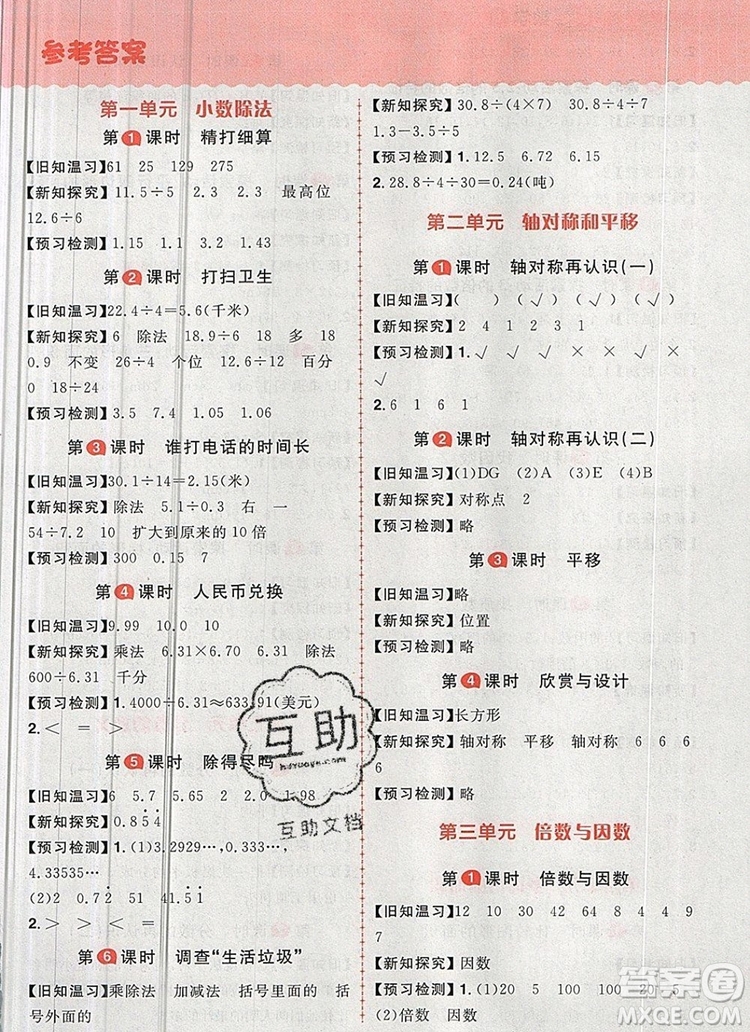 参考答案
第一单元 小数除法
第1课时 精打细算
【旧知温习】61 25 129 275
【新知探究】11.5÷5 2.3 2.3 最高位
12.6÷6
【预习检测】1.15 1.3 1.2 1.43
第2课时 打扫卫生
【旧知温习】22.4÷4=5.6(千米)
【新知探究】6 除法 18.9÷6 18 多 18
0.9 不变 26÷4 12.6÷12 百分
0 18÷24
【预习检测】3.5 7.4 1.05 1.06
第3课时 谁打电话的时间长
【旧知温习】30.1÷14=2.15(米)
【新知探究】除法 5.1÷0.3 右 一
54÷7.2 10 扩大到原来的10倍
【预习检测】300 0.15 7
第4课时 人民币兑换
【旧知温习】9.99 10.0 10
【新知探究】乘法 ×6.31 除法
600÷6.31 千分
【预习检测】1.4000÷6.31≈633.91(美元)
2.< = >
第5课时 除得尽吗
【旧知温习】6 5.7 5.65 2 2.0 1.98
【新知探究】0.8̇54̇
【预习检测】1.(1)3.2929…,0.333…,
4.33535…
(2)2 0.72̇ 51 41.5̇1̇
2.> < <
第6课时 调查“生活垃圾”
【旧知温习】乘除法 加减法 括号里面的 括
号外面的
【新知探究】30.8÷(4×7) 30.8÷4÷7
1.3-3.5÷5
【预习检测】1.②
2.28.8÷4÷30=0.24(吨)
第二单元 轴对称和平移
第1课时 轴对称再认识(一)
【旧知温习】( ) (√) (√) (√)
【新知探究】2 4 1 2 3 1
【预习检测】1.√ √ × × √
√
2.6 1 6 1
第2课时 轴对称再认识(二)
【旧知温习】(1)DG (2)A (3)E (4)B
【新知探究】对称点 2
【预习检测】略
第3课时 平移
【旧知温习】略
【新知探究】位置
【预习检测】略
第4课时 欣赏与设计
【旧知温习】长方形
【新知探究】轴对称 平移 6 6 6
6
【预习检测】略
第三单元 倍数与因数
第1课时 倍数与因数
【旧知温习】12 10 30 42 64 8 4 9
7
【新知探究】因数
【预习检测】1.(1)5 100 100 20 5
(2)倍数 因数
互助
hdzuoye.cn
互助文档
答案圈
MXQE.COM